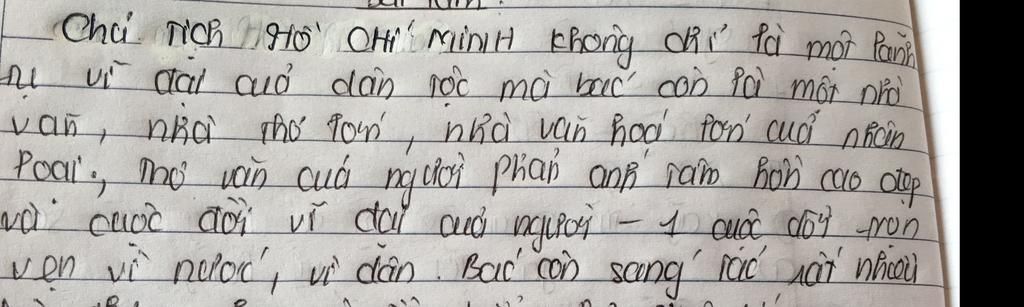 Chủ tịch Hồ CHÍ MINH không chỉ là một lãnh
tụ vĩ đại của dân tộc mà bác còn là một nhà
văn, nhà thơ lớn, nhà văn hoá lớn của nhân
loại., Thơ văn của người phản ánh tâm hồn cao đẹp
và cuộc đời vĩ đại của người - 1 cuộc đời trọn
vẹn vì nước, vì dân. Bác còn sáng tác rất nhiều